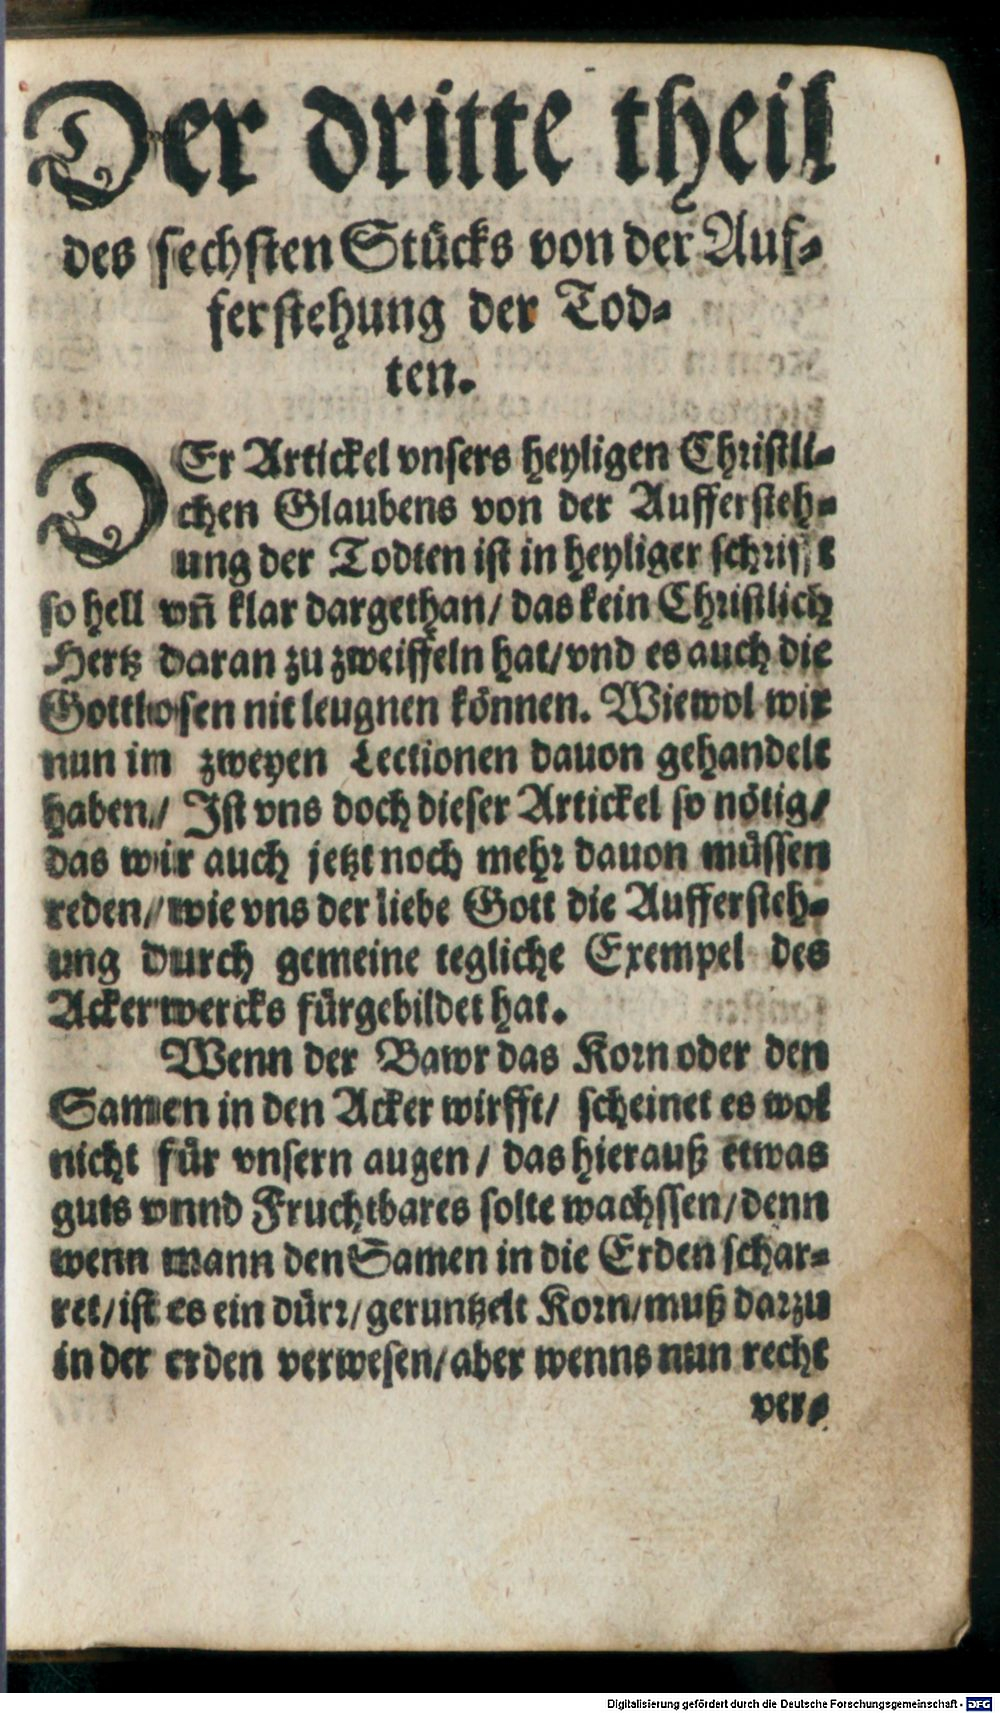 Der dritte theil
des sechsten Stücks von der Auf⸗
ferstehung der Tod⸗
ten.
DEr Artickel vnsers heyligen Christli⸗
chen Glaubens von der Auffersteh⸗
ung der Todten ist in heyliger schrifft
so hell vn̄ klar dargethan/ das kein Christlich
Hertz daran zu zweiffeln hat/ vnd es auch die
Gottlosen nit leugnen können. Wiewol wir
nun im zweyen Lectionen dauon gehandelt
haben/ Ist vns doch dieser Artickel so nötig/
das wir auch jetzt noch mehr dauon müssen
reden/ wie vns der liebe Gott die Auffersteh⸗
ung durch gemeine tegliche Exempel des
Ackerwercks fürgebildet hat.
Wenn der Bawr das Korn oder den
Samen in den Acker wirfft/ scheinet es wol
nicht für vnsern augen/ das hierauß etwas
guts vnnd Fruchtbares solte wachssen/ denn
wenn mann den Samen in die Erden schar⸗
ret/ ist es ein dürr/ geruntzelt Korn/ muß darzu
in der erden verwesen/ aber wenns nun recht
ver⸗
Digitalisierung gefördert durch die Deutsche Forschungsgemeinschaft - DFG